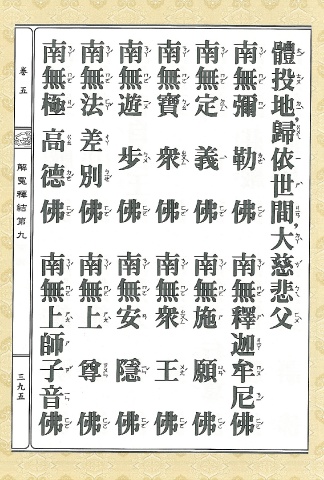 體投地，歸依世間，大慈悲父
南無彌勒佛 南無釋迦牟尼佛
南無定義佛 南無施願佛
南無寶眾佛 南無眾王佛
南無遊步佛 南無安隱佛
南無法差別佛 南無上尊佛
南無極高德佛 南無上師子音佛
卷五
解冤釋結第九
三九五